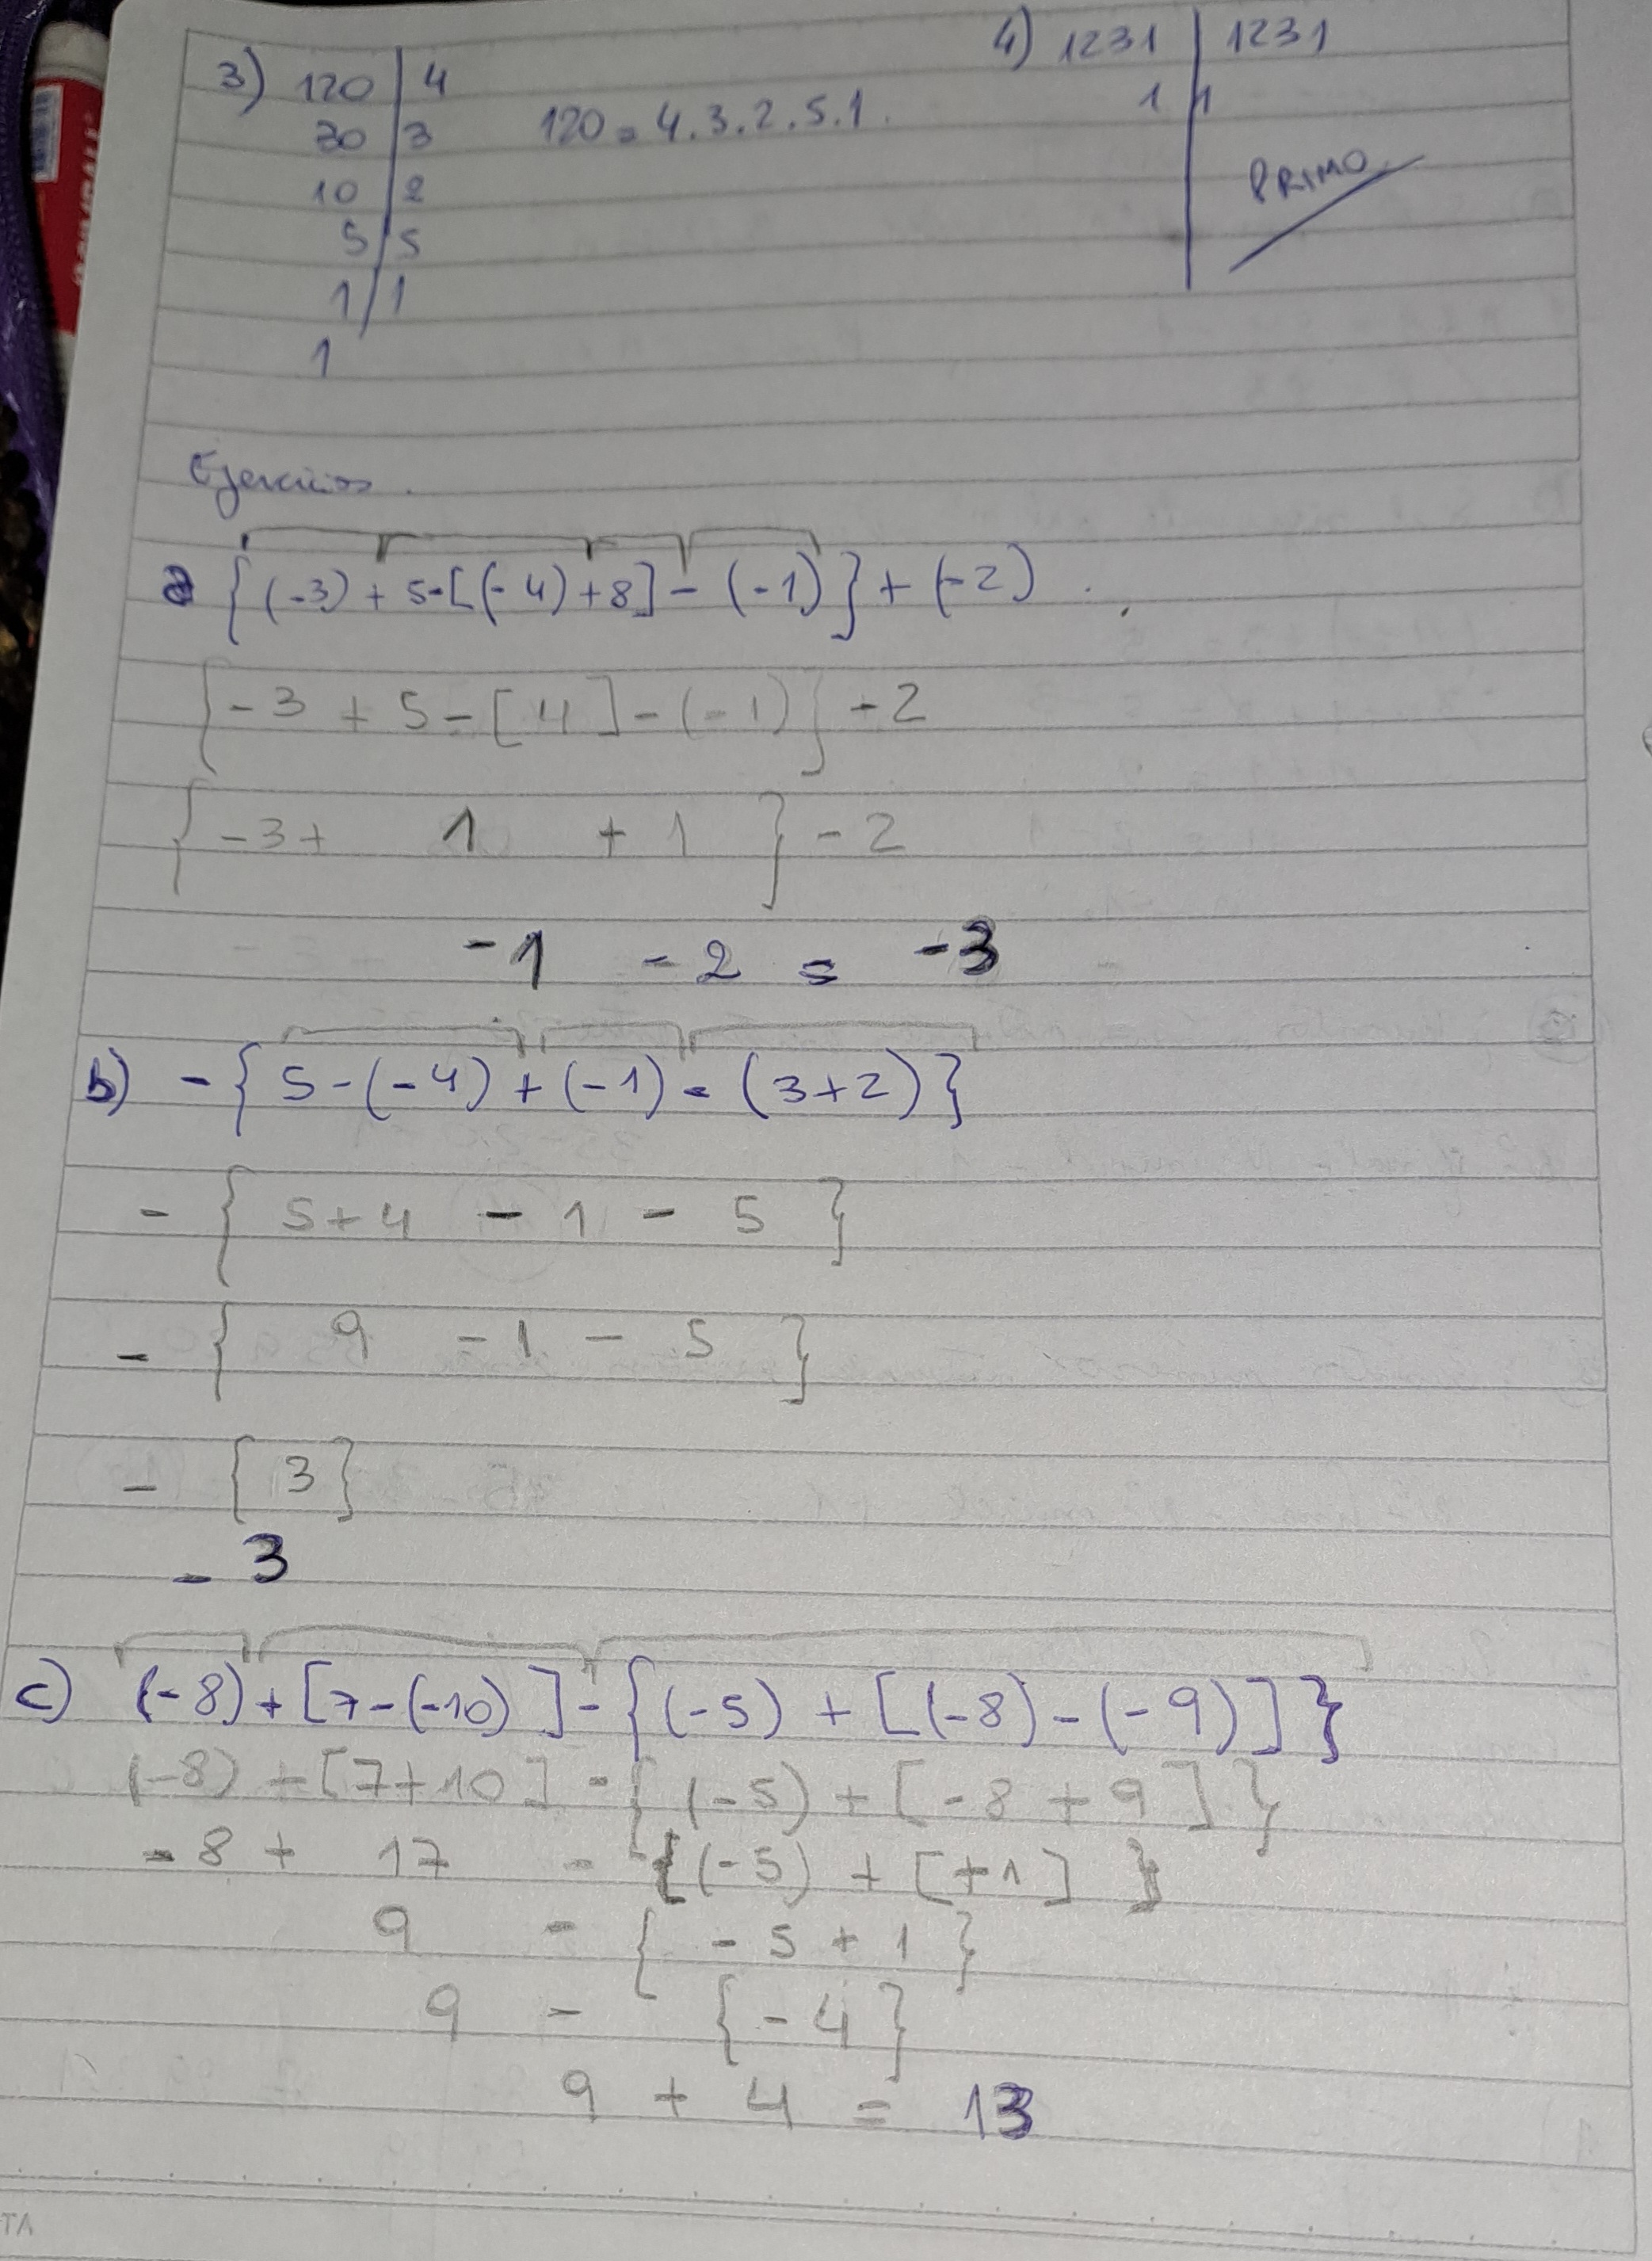 3) 120 | 4
30 | 3
10 | 2
5 | 5
1 | 1
1
120 = 4.3.2.5.1.
4) 1231 | 1231
1 | 1
PRIMO
Ejercicios.
a {(-3) + 5-[(-4)+8] - (-1)} + (-2)
{-3 + 5 - [4] - (-1)} - 2
{-3+ 1 + 1} - 2
-1 - 2 = -3
b) -{5-(-4)+(-1)-(3+2)}
- {5+4 - 1 - 5}
- {9 - 1 - 5}
- {3}
- 3
c) (-8)+[7-(-10)]-{(-5) + [(-8)-(-9)]}
(-8) + [7+10] - {(-5) + [-8 + 9]}
- 8 + 17 - {(-5) + [+1]}
9 - {-5 + 1}
9 - {-4}
9 + 4 = 13
TA